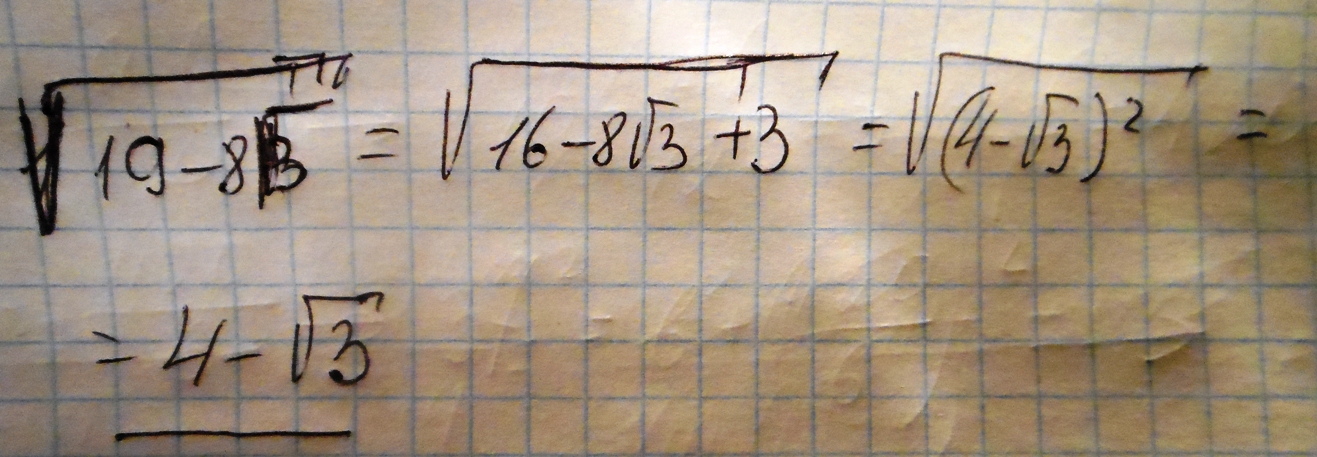 √19-8√3 = √16-8√3+3 = √(4-√3)² =
= 4-√3